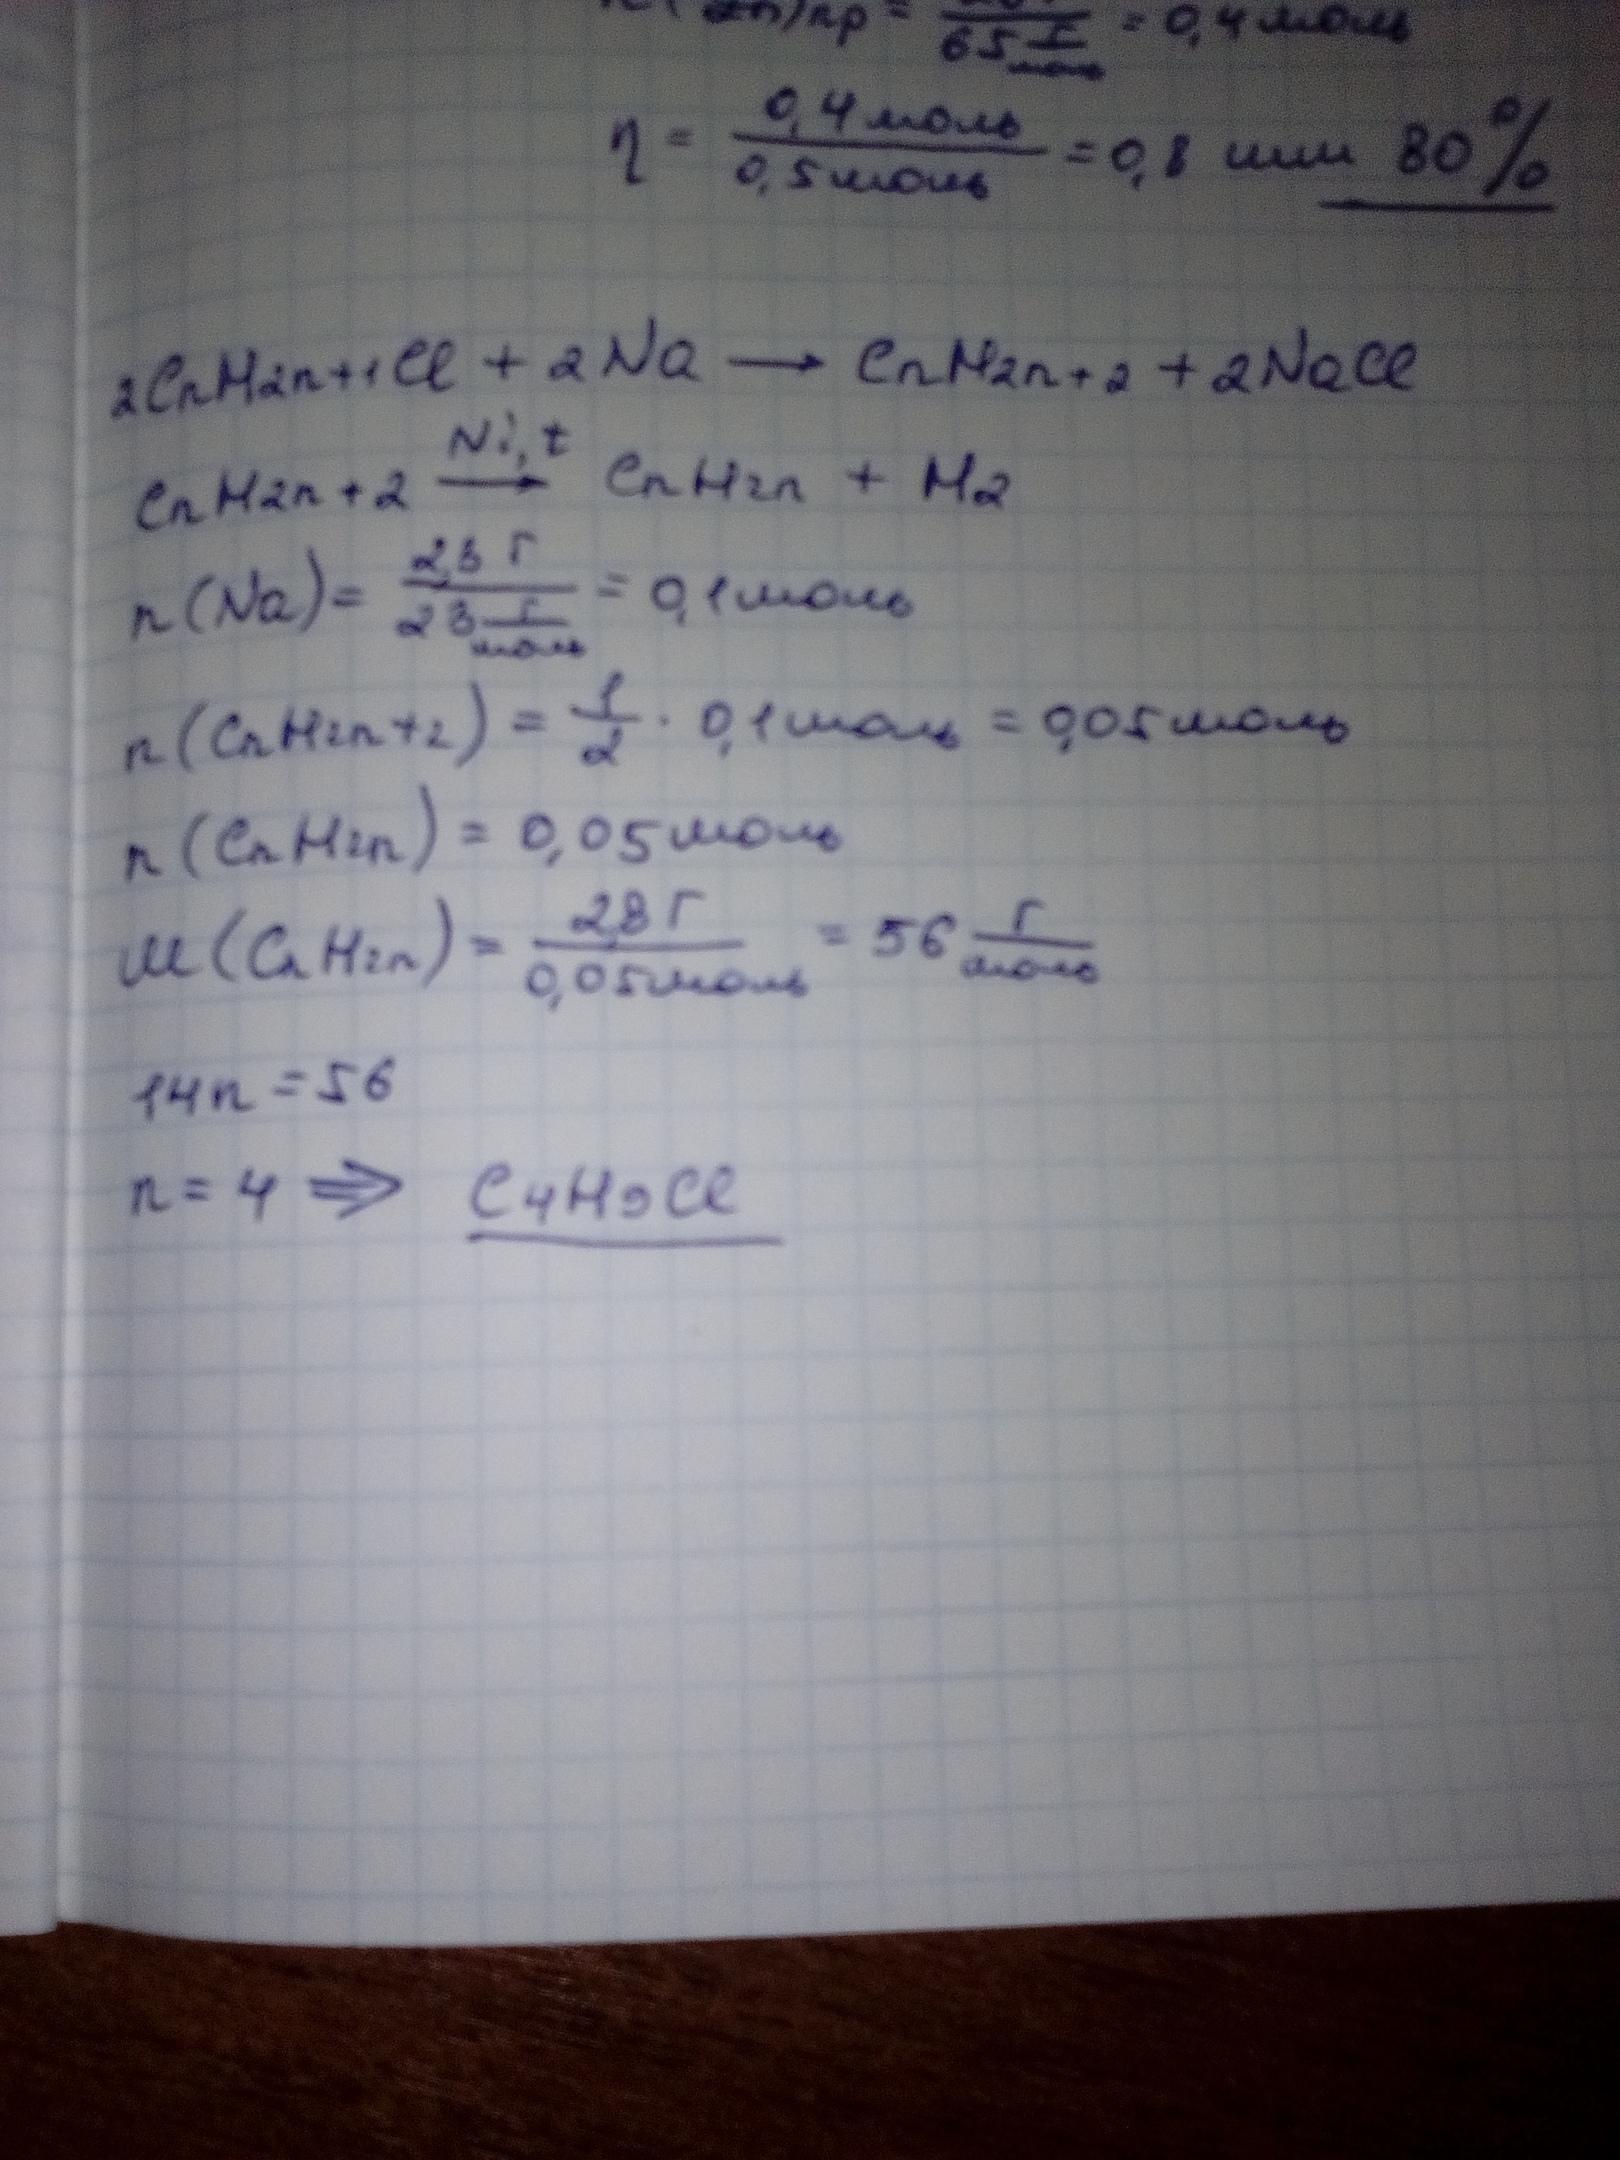 = 65 г/моль = 0,4 моль
η = 0,4 моль / 0,5 моль = 0,8 или 80%
2CnH2n+1Cl + 2Na → CnH2n+2 + 2NaCl
CnH2n+2 Ni, t → CnH2n + H2
n(Na) = 2,3 г / 23 г/моль = 0,1 моль
n(CnH2n+2) = 1/2 · 0,1 моль = 0,05 моль
n(CnH2n) = 0,05 моль
M(CnH2n) = 2,8 г / 0,05 моль = 56 г/моль
14n = 56
n = 4 ⇒ C4H9Cl